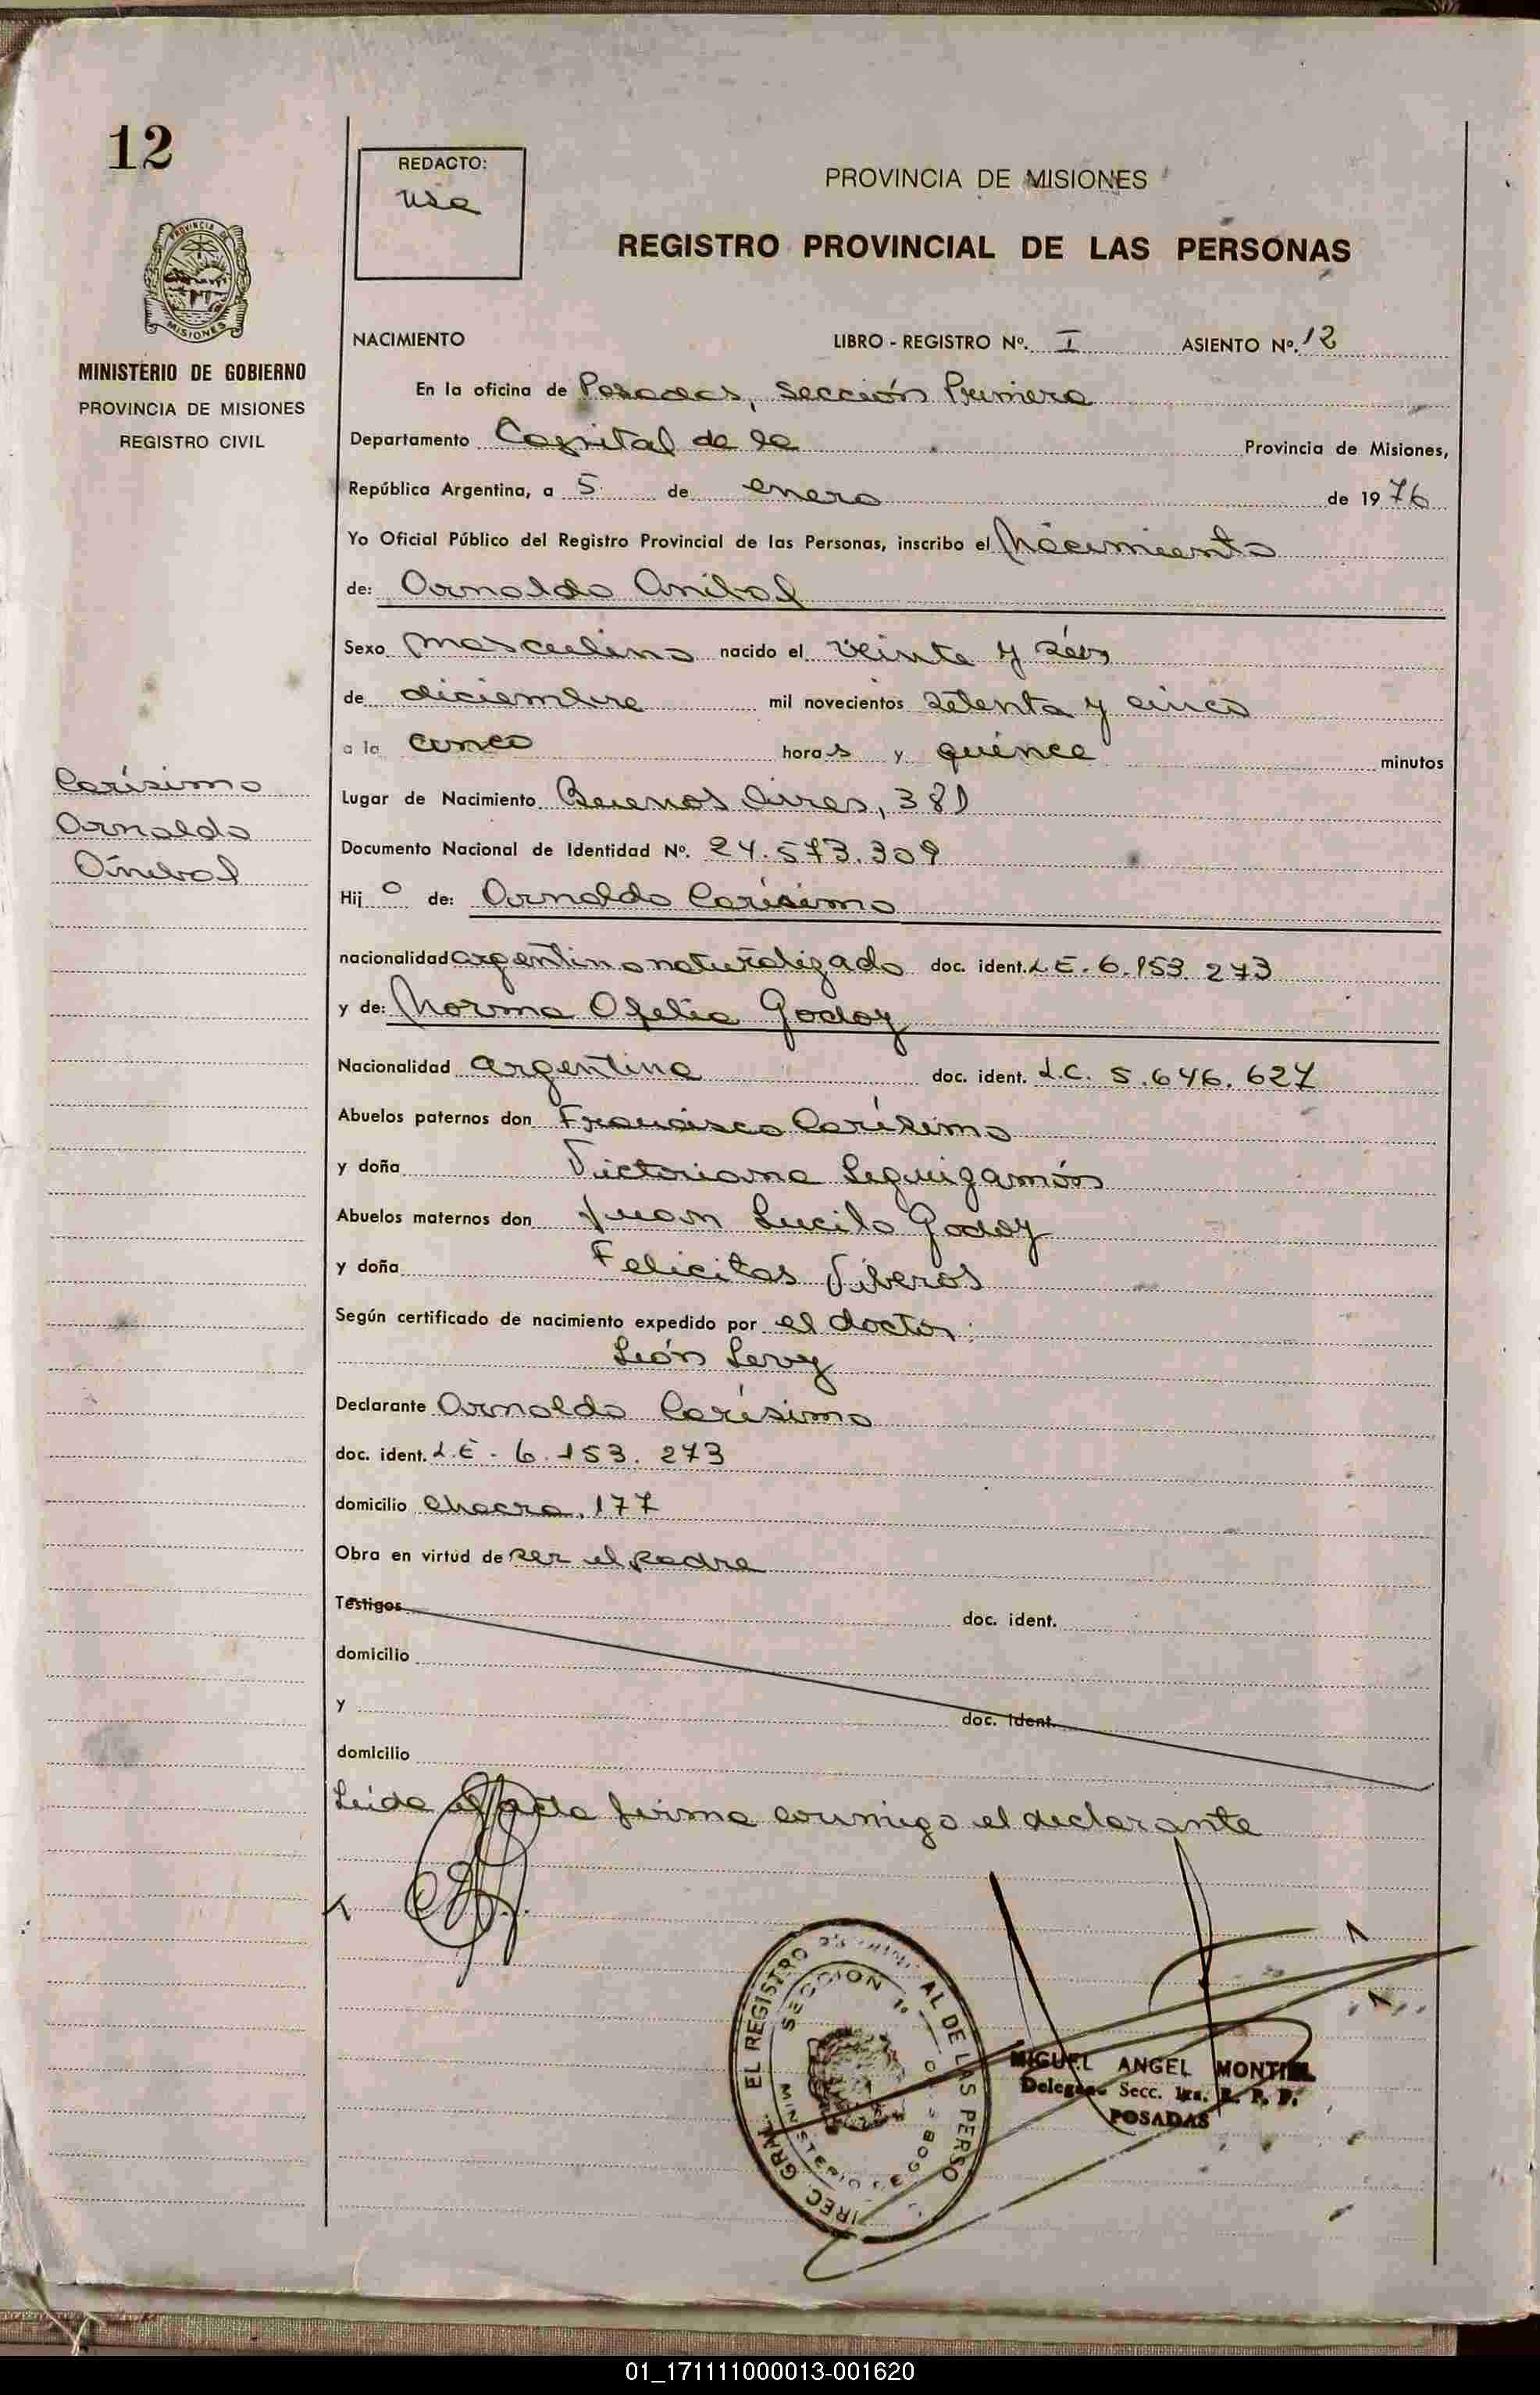 12
REDACTO:
PROVINCIA DE MISIONES
REGISTRO PROVINCIAL DE LAS PERSONAS
PROVINCIA DE
MISIONES
MINISTERIO DE GOBIERNO
PROVINCIA DE MISIONES
REGISTRO CIVIL
NACIMIENTO LIBRO - REGISTRO Nº. I ASIENTO Nº. 12
En la oficina de Posadas, Sección Primera
Departamento Capital de la Provincia de Misiones,
República Argentina, a 5 de enero de 1976
Yo Oficial Público del Registro Provincial de las Personas, inscribo el Nacimiento
de: Arnoldo Anibal
Sexo masculino nacido el veinte y séis
de diciembre mil novecientos setenta y cinco
a la cinco horas y quince minutos
Carísimo
Arnoldo
Aníbal
Lugar de Nacimiento Buenos Aires, 381
Documento Nacional de Identidad Nº. 24.573.309
Hijo de: Arnoldo Carísimo
nacionalidad argentino naturalizado doc. ident. L.E. 6.153.273
y de: Norma Ofelia Godoy
Nacionalidad argentina doc. ident. L.C. 5.646.627
Abuelos paternos don Francisco Carísimo
y doña Victoriana Leguizamón
Abuelos maternos don Juan Lucilo Godoy
y doña Felicitas Viberos
Según certificado de nacimiento expedido por el doctor:
León Levy
Declarante Arnoldo Carísimo
doc. ident. L.E. 6.153.273
domicilio Chacra, 177
Obra en virtud de ser el padre
Testigos doc. ident.
domicilio
y doc. ident.
domicilio
Leida el acta firma conmigo el declarante
IREC. GRAL EL REGISTRO AL DE LAS PERSO
SECCION 1º
MINISTERIO DE GOB
MIGUEL ANGEL MONTIEL
Delegado Secc. 1ra. R. P. P.
POSADAS
01_171111000013-001620